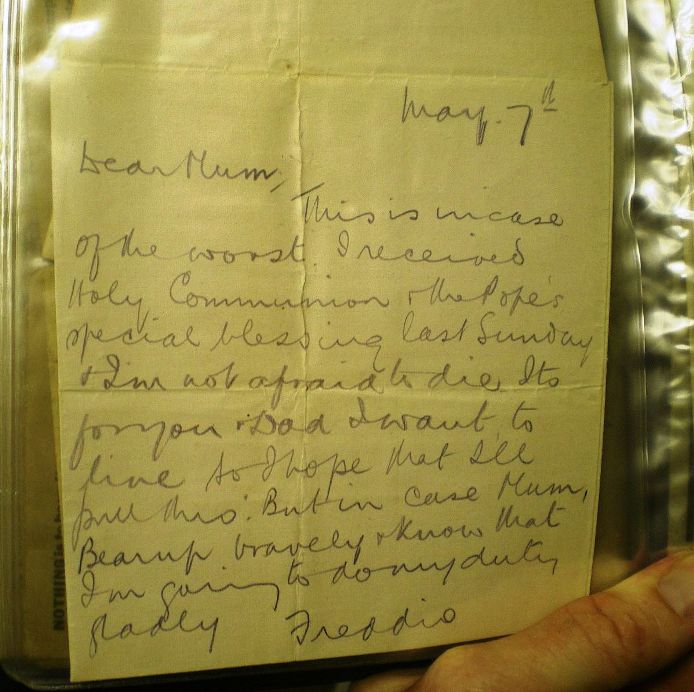 May. 7th
Dear Mum,
This is in case
of the worst. I received
Holy Communion & the Pope's
special blessing last Sunday
& I'm not afraid to die. Its
for you & Dad I want to
live so I hope that I'll
pull thro'. But in case Mum,
Bear up bravely & know that
I'm going to do my duty
gladly Freddie
NOTHING